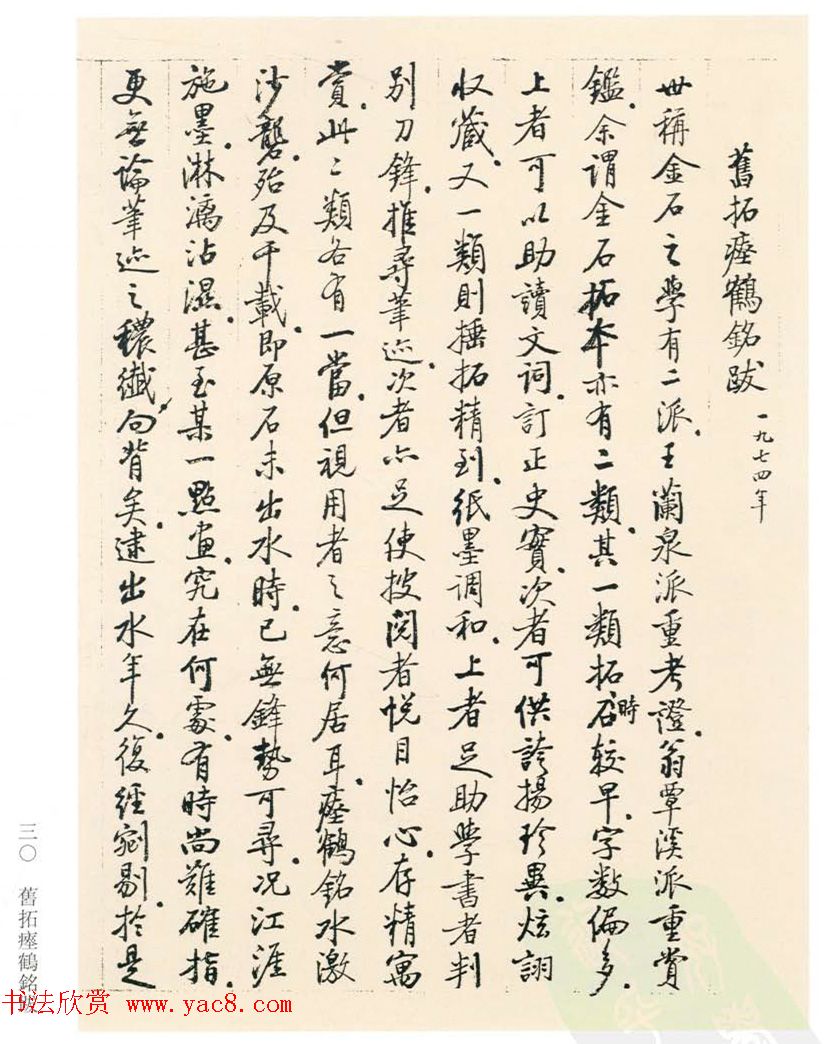 舊拓瘞鶴銘跋 一九七四年
世稱金石之學有二派。王蘭泉派重考證。翁覃溪派重賞
鑑。余謂金石拓本亦有二類。其一類拓時石較早。字數偏多。
上者可以助讀文詞。訂正史實。次者可供誇揚珍異。炫詡
收藏。又一類則捶拓精到。紙墨調和。上者足助學書者判
别刀鋒。推尋筆迹。次者亦足使披閱者悦目怡心。存精寓
賞。此二類各有一當。但視用者之意何居耳。瘞鶴銘水激
沙礱。殆及千載。即原石未出水時。已無鋒勢可尋。况江涯
施墨。淋漓沾濕。甚至某一點畫。究在何處。有時尚難確指。
更無論筆迹之穠纖向背矣。逮出水年久。復經剜剔。於是
三〇 舊拓瘞鶴銘跋
书法欣赏 www.yac8.com